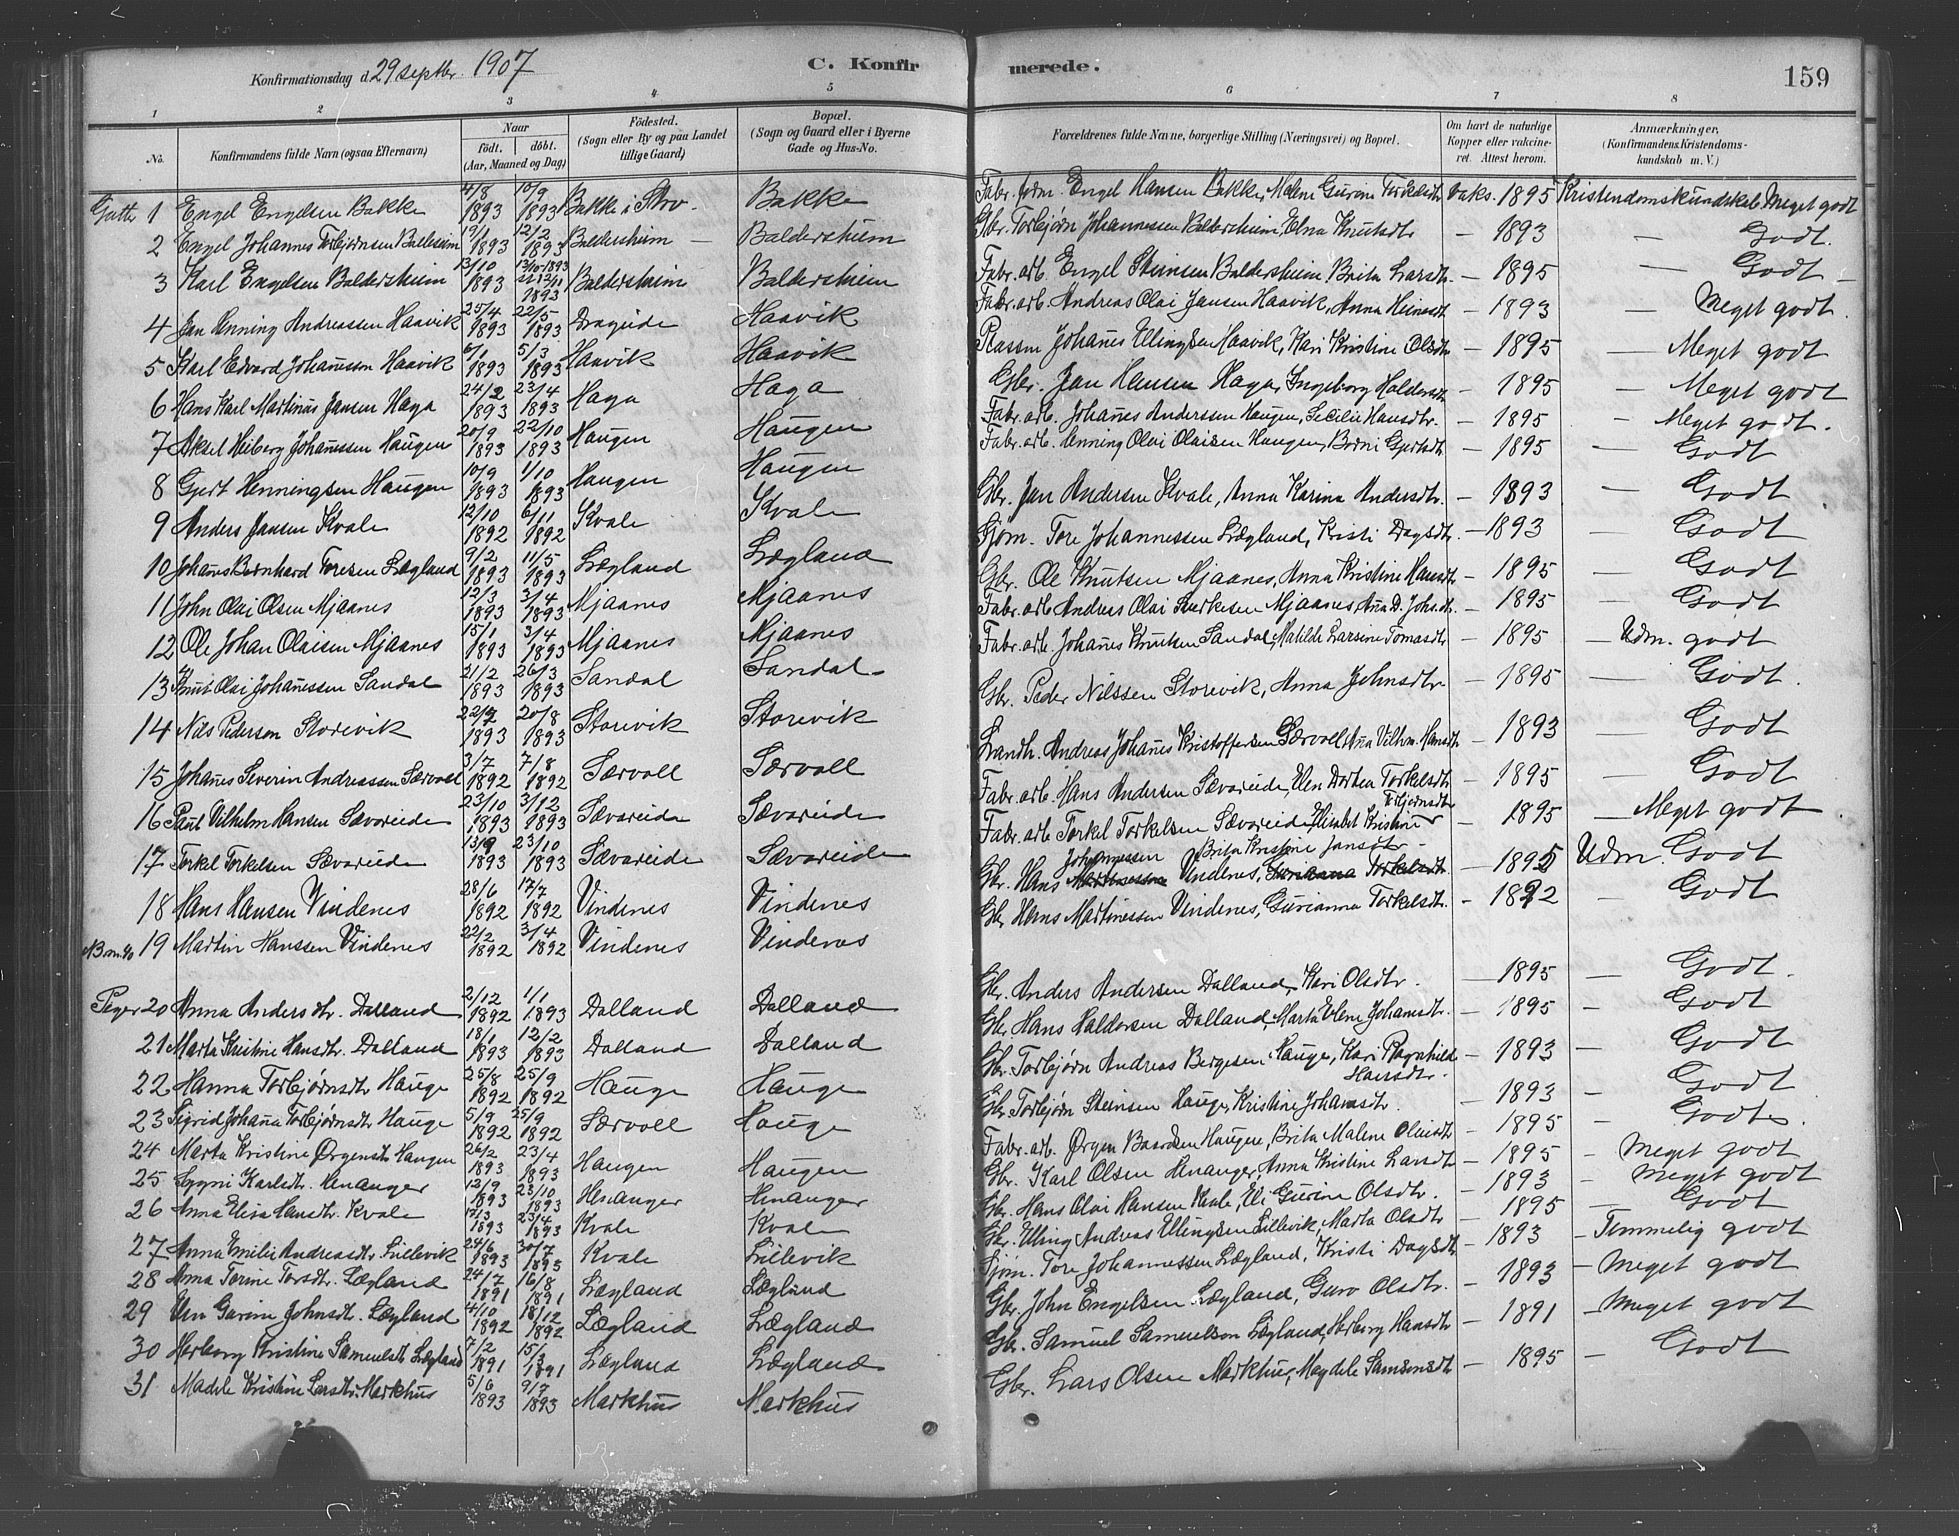 Konfirmationsdag d. 29 septbr. 1907
C. Konfirmerede.
159
1 2 3 4 5 6 7 8
No. Konfirmandens fulde Navn (ogsaa Efternavn) Naar født. døbt. (Aar, Maaned og Dag) Fødested. (Sogn eller By og paa Landet tillige Gaard) Bopæl. (Sogn og Gaard eller i Byerne Gade og Hus-No. Forældrenes fulde Navne, borgerlige Stilling (Næringsvei) og Bopæl. Om havt de naturlige Kopper eller vaccineret. Attest herom. Anmærkninger, (Konfirmandens Kristendomskundskab m. V.)
Gutter 1 Engel Engelsen Bakke 4/8 1893 10/9 1893 Bakke i Strv. Bakke Fabr. Engel Hansen Bakke, Malene Gurine Torkelsdtr vaks. 1895 Kristendomskundskab Meget godt
2 Engel Johannes Torbjørnsen Baldersheim 19/1 1893 12/2 1893 Baldersheim — Baldersheim Gbr. Torbjørn Johannessen Baldersheim, Elna Knutsdtr — 1893 — Godt.
3 Karl Engelsen Baldersheim 13/10 1893 1893 Baldersheim Baldersheim Fabr. arb. Engel Steinsen Baldersheim Brita Larsdtr. — 1895 — Godt
4 Jan Henning Andreassen Haavik 25/4 1893 22/5 1893 Drageide Haavik Fabr. arb. Andreas Olai Jansen Haavik, Anna Heinesdt — 1893 — Meget godt.
5 Karl Edvard Johannessen Haavik 6/1 1893 5/3 1893 Haavik Haavik Plassm Johanes Ellingsen Haavik, Kari Kristine Olsdtr — 1895 — Meget godt
6 Hans Karl Martinus Jansen Haga 24/2 1893 23/4 1893 Haga Haga Gbr. Jan Hansen Haga, Ingeborg Haldorsdtr — 1895 — Meget godt
7 Aksel Heiberg Johanessen Haugen 20/9 1893 22/10 1893 Haugen Haugen Fabr. arb. Johanes Anderssen Haugen, Cecilie Hansdtr. — 1895 — Meget godt.
8 Gjert Henningsen Haugen 10/9 1893 1/10 1893 Haugen Haugen Fabr. arb. Henning Olai Olaisen Haugen, Berni Gjertsdt — 1895 — Godt
9 Anders Jansen Kvale 12/10 1892 6/11 1892 Kvale Kvale Gbr. Jan Andersen Kvale, Anna Karina Andersdtr. — 1893 — Godt
10 Johans Bernhard Toresen Lægland 9/2 1893 11/5 1893 Lægland Lægland Sjøm. Tore Johannessen Lægland, Kristi Dagsdtr. — 1893 — Godt
11 John Olai Olsen Mjaanes 12/3 1893 3/4 1893 Mjaanes Mjaanes Gbr. Ole Knutsen Mjaanes, Anna Kristine Hansdtr — 1895 — Godt
12 Ole Johan Olaisen Mjaanes 15/1 1893 3/4 1893 Mjaanes Mjaanes Fabr. arb. Anders Olai Mjaanes, Ana D. Johsdtr. — 1895 — Godt
13 Knut Olai Johanessen Sandal 21/2 1893 26/3 1893 Sandal Sandal Fabr. arb. Johanes Knutsen Sandal, Matilde Larsine Tomasdtr — 1895 — Udm. godt
14 Nils Pederson Storevik 22/7 1893 20/8 1893 Storevik Storevik Gbr. Peder Nilssen Storevik, Anna Johnsdtr — 1895 — Godt.
15 Johanes Severin Andreassen Særvoll 3/7 1892 7/8 1892 Særvoll Særvoll Strandh. Andreas Johanes Kristoffersen Særvoll, Ana Vilhm. Hansdtr — 1893 — Godt
16 Paul Vilhelm Hansen Sævareide 23/10 1893 3/12 1893 Sævareide Sævareide Fabr. arb. Hans Andersen Sævareide, Elen Dortea Torkelsdtr — 1895 — Godt
17 Torkel Torkelsen Sævareide 13/9 1893 23/10 1893 Sævareide Sævareide Fabr. arb Torkel Torkelsen Sævareide, Elisabet Kristine Torbjørnsdtr — 1895 — Meget godt
18 Hans Hansen Vindenes 28/6 1892 17/7 1892 Vindenes Vindenes Gbr. Hans Johannessen Vindenes, Brita Kristine Jansdtr — 1895 Udm. Godt
19 Martin Hanssen Vindenes 22/2 1892 3/4 1892 Vindenes Vindenes Gbr Hans Martinessen Vindenes, Gurianna Torkelsdtr. — 1892 — Godt
Piger 20 Anna Andersdtr. Dalland 2/12 1892 1/1 1893 Dalland Dalland Gbr. Anders Andersen Dalland, Kari Olsdtr. — 1895 — Godt.
21 Marta Kristine Hansdtr. Dalland 18/1 1893 12/2 1893 Dalland Dalland Gbr. Hans Haldorsen Dalland, Marta Elene Johansdtr. — 1895 — Godt
22 Hanna Torbjørnsdtr Hauge 25/8 1892 25/9 1892 Hauge Hauge Gbr. Torbjørn Andreas Bergesen Hauge, Kari Ragnhild Hansdtr. — 1893 — Godt
23 Sigrid Johana Torbjørnsdtr Hauge 5/9 1892 25/9 1892 Særvoll Hauge Gbr Torbjørn Steinsen Hauge, Kristine Johansdtr. — 1893 — Godt
24 Marta Kristine Ørgensdtr Haugen 26/2 1893 23/4 1893 Haugen Haugen Fabr. arb. Ørgen Baardsen Haugen, Brita Malene Olaisdtr — 1895 — Godt.
25 Sygni Karlsdtr. Henanger 12/9 1893 23/10 1893 Henanger Henanger Gbr. Karl Olsen Henanger, Anna Kristine Larsdtr — 1895 — Meget godt
26 Anna Elisa Hansdtr. Kvale 17/3 1893 23/4 1893 Kvale Kvale Gbr. Hans Olai Hansen Kvale, Eli Gurine Olsdtr. — 1893 — Meget godt
27 Anna Emilie Andreasdtr Lillevik 24/6 1893 30/7 1893 Kvale Lillevik Gbr. Elling Andreas Ellingsen Lillevik, Marta Olsdtr — 1895 — Godt
28 Anna Torine Torsdtr. Lægland 24/7 1891 16/8 1891 Lægland Lægland Sjøm. Tore Johannessen Lægland, Kristi Dagsdtr — 1893 — Temmelig godt
29 Gurine Johnsdt. Lægland 4/10 1892 18/12 1892 Lægland Lægland Gbr. John Engelsen Lægland, Guro Olsdtr. — 1893 — Meget godt
30 Herborg Kristine Samuelsdt Lægland 7/2 1891 15/3 1891 Lægland Lægland Gbr. Samuel Samuelson Lægland, Herborg Hansdtr — 1891 — Meget godt
31 Madele Kristine Larsdtr. Markhus 5/6 1893 9/7 1893 Markhus Markhus Gbr. Lars Olsen Markhus, Magdele Samsonsdtr — 1895 — Godt